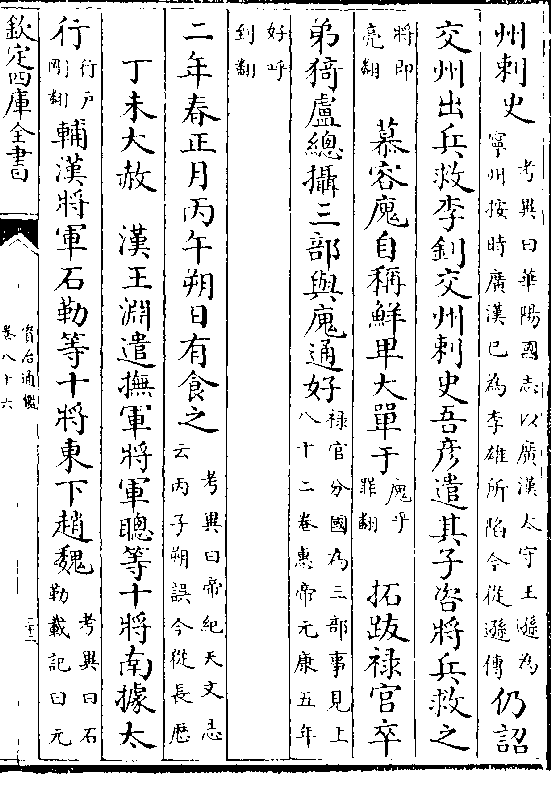 州刺史考異曰華陽國志以廣漢太守王遜為寧州按時廣漢已為李雄所陷今從遜傳仍詔
交州出兵救李釗交州刺史吾彦遣其子咨將兵救之
將即亮翻　慕容廆自稱鮮卑大單于廆乎罪翻　拓跋祿官卒
弟猗盧總攝三部與廆通好祿官分國為三部事見上八十二卷惠帝元康五年
好呼到翻
二年春正月丙午朔日有食之考異曰帝紀天文志云丙子朔誤今從長厯
丁未大赦　漢王淵遣撫軍將軍聰等十將南據太
行行戶剛翻輔漢將軍石勒等十將東下趙魏考異曰石勒載記曰元
欽定四庫全書
資治通鑑
卷八十六
二十三